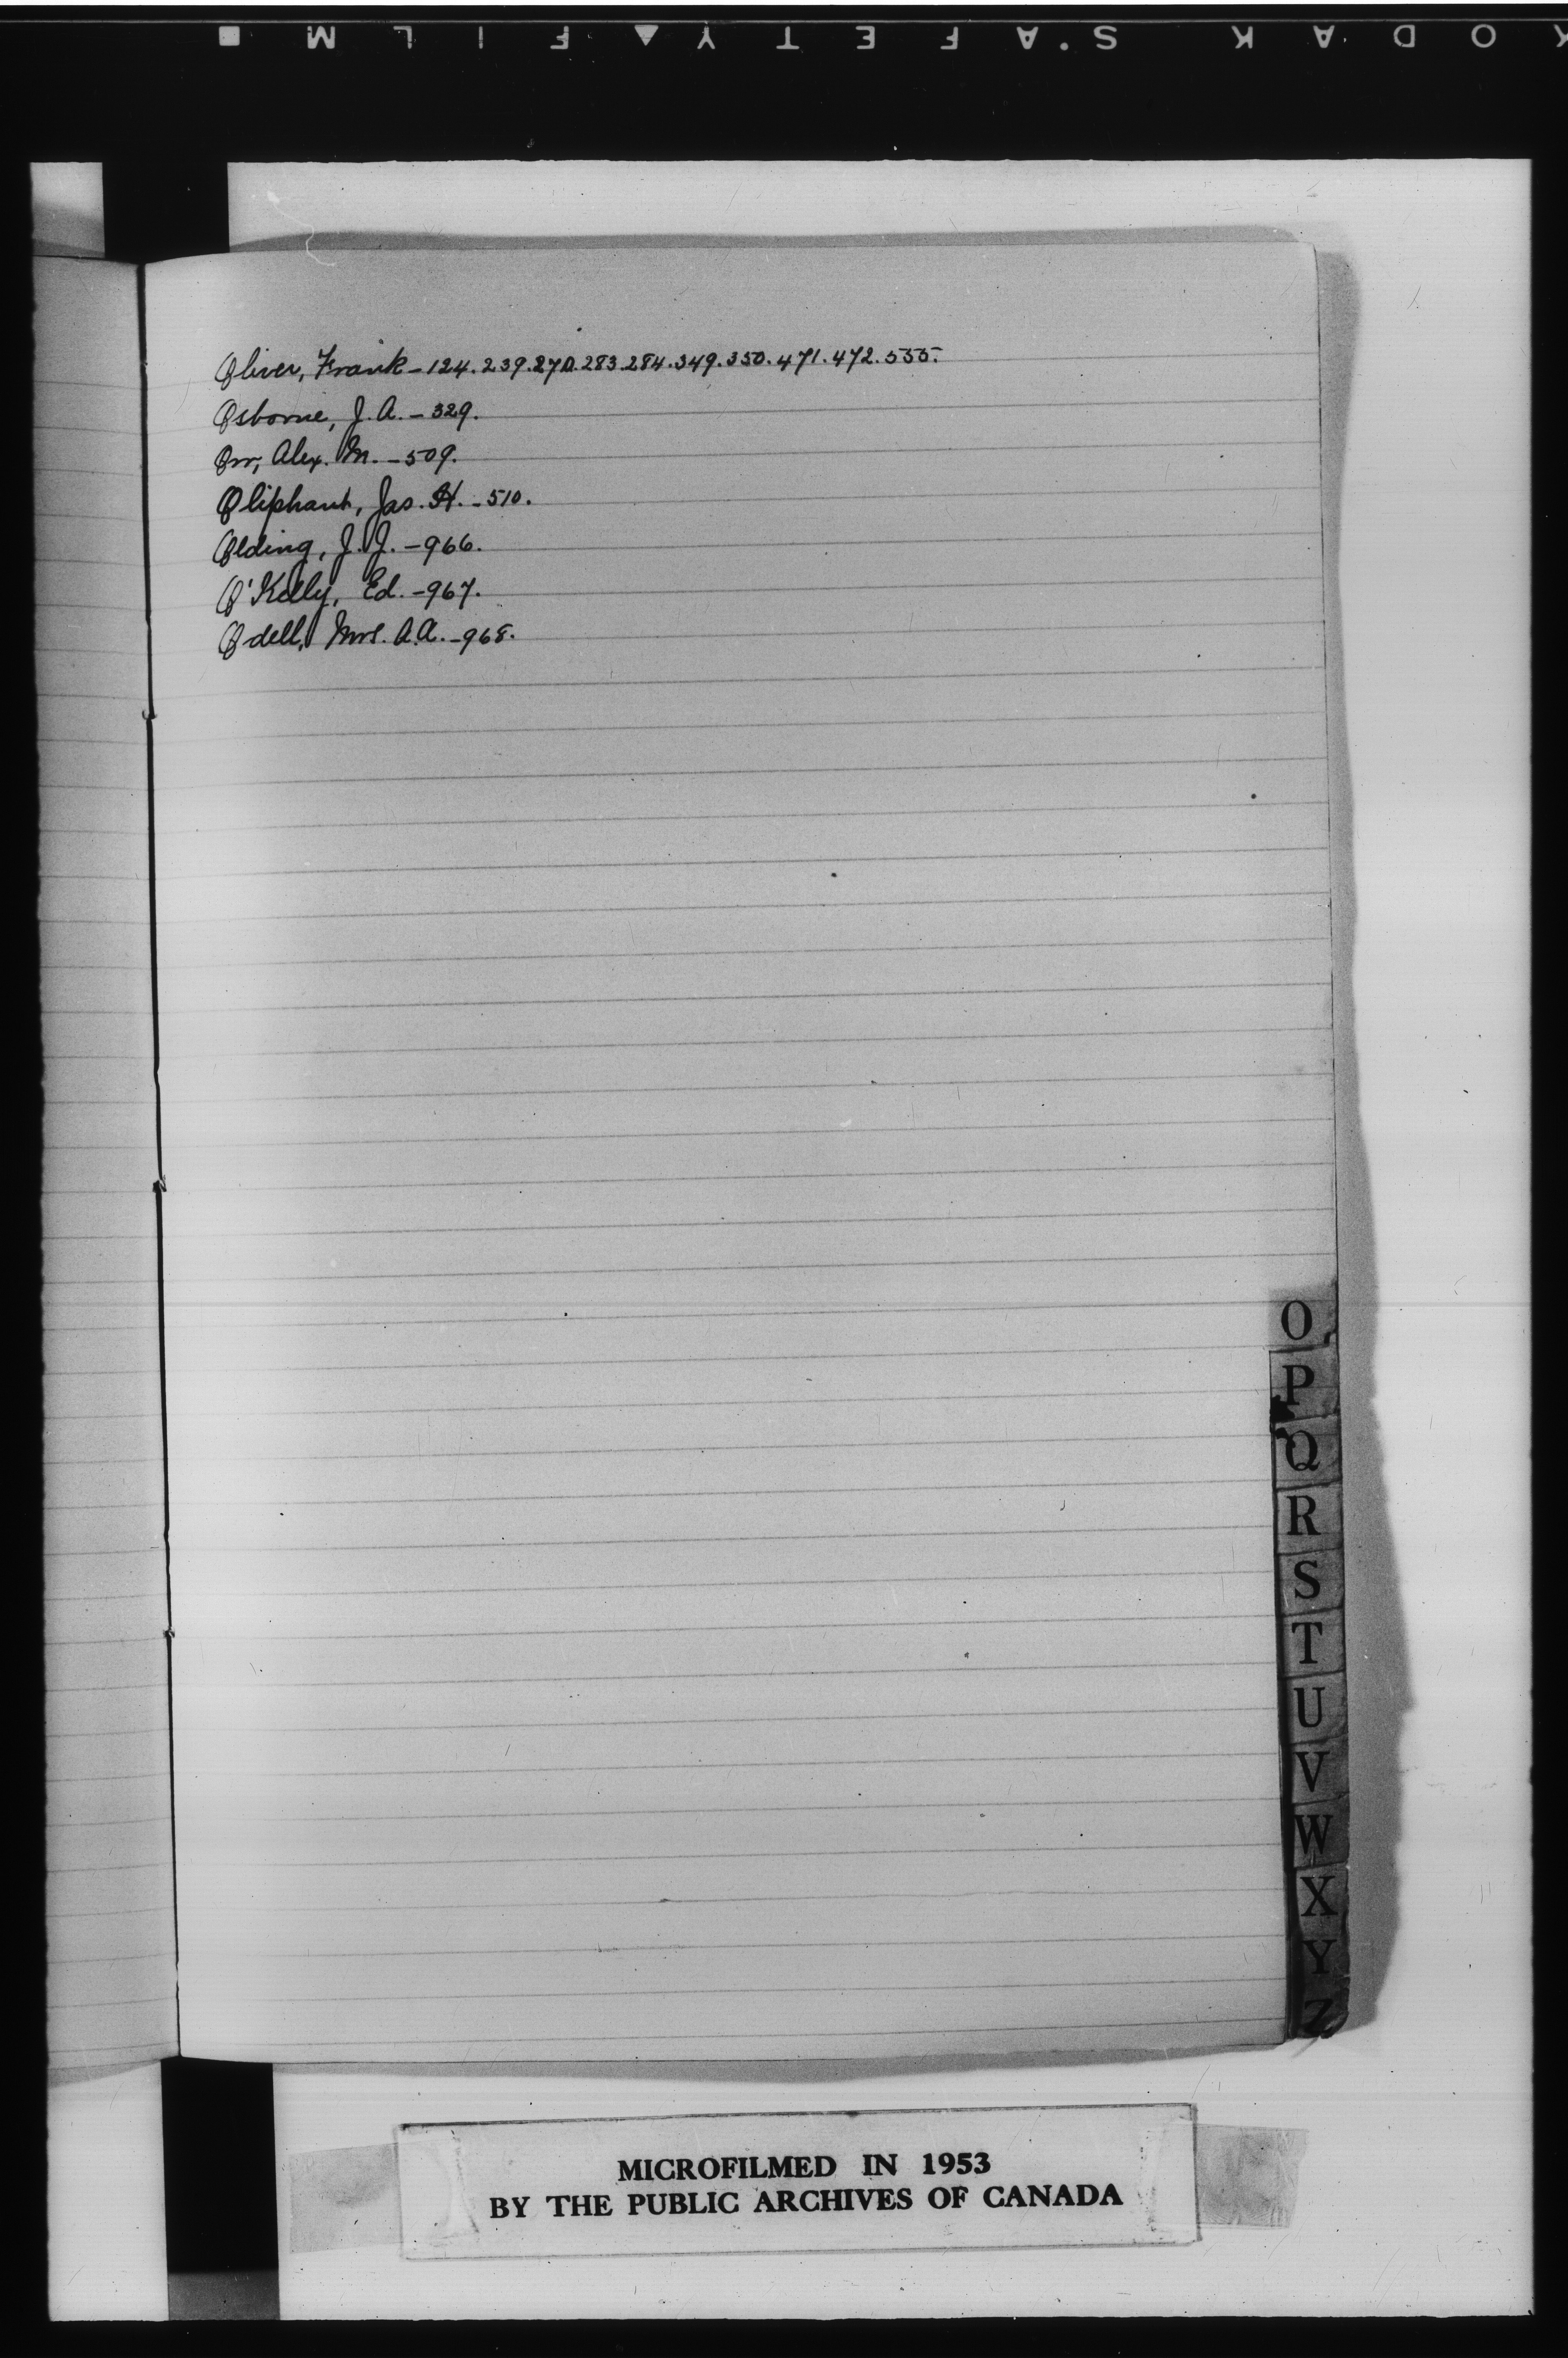 KODAK SAFETY FILM
Oliver, Frank - 124. 239. 270. 283. 284. 349. 350. 471. 472. 555.
Osborne, J. A. - 329.
Orr, Alex. M. - 509.
Oliphant, Jas. H. - 510.
Olding, J. J. - 966.
O'Kelly, Ed. - 967.
Odell, Mrs. A.A. - 968.
O
P
Q
R
S
T
U
V
W
X
Y
Z
MICROFILMED IN 1953
BY THE PUBLIC ARCHIVES OF CANADA